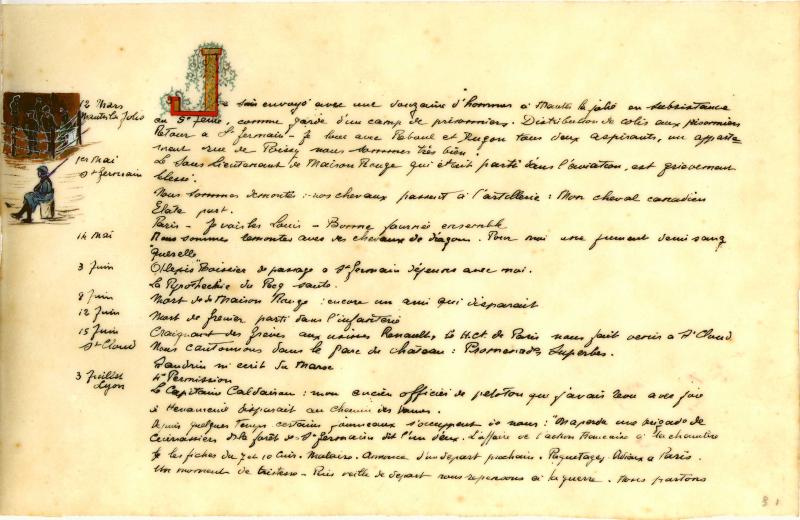 12 Mars
Mantes la Jolie
Je suis envoyé avec une douzaine d'hommes à Mantes la jolie en subsistance
au 5e Génie, comme garde d'un camp de prisonniers. Distribution de colis aux prisonniers
Retour à St Germain - Je loue avec Reboul et Hugon tous deux aspirants, un apparte
ment rue de Poissy nous sommes très bien
1er Mai
St Germain
Le Sous Lieutenant de Maison Rouge qui était parti dans l'aviation, est grièvement
blessé.
Nous sommes démontés : nos chevaux passent à l'artillerie : Mon cheval canadien
part.
Paris - Je vais les Louis - Bonne journée ensemble
14 Mai
Nous sommes remontés avec des chevaux de dragons. Pour moi une jument demi sang
"Querelle
3 Juin
Tessier de passage à St Germain déjeune avec moi.
La du Pecq saute.
8 Juin
Mort de de Maison Rouge : encore un ami qui disparait
12 Juin
Mort de Grenier parti dans l'infanterie
15 Juin
St Cloud
Craignant des Grèves aux usines Renault, le de Paris nous fait venir à St Cloud
Nous cantonnons dans le parc du château : Promenades Superbes.
Landrin m'écrit du Maroc
3 Juillet
Lyon
4e Permission
Le Capitaine : mon ancien officier de peloton que j'avais avec joie
à disparait au Chemin des Dames.
Depuis quelques temps certains journeaux s'occupent de nous : "On a perdu une brigade de
Cuirassiers dans la forêt de St Germain dit l'un d'eux. L'affaire de l'action Française à la chambre
& les fiches du 7 et 10 Cuir. Malaise. Annonce d'un départ prochain. Paquetages. Adieux à Paris.
Un moment de tristesse - Puis veille de départ nous repensons à la guerre. Nous partons
31